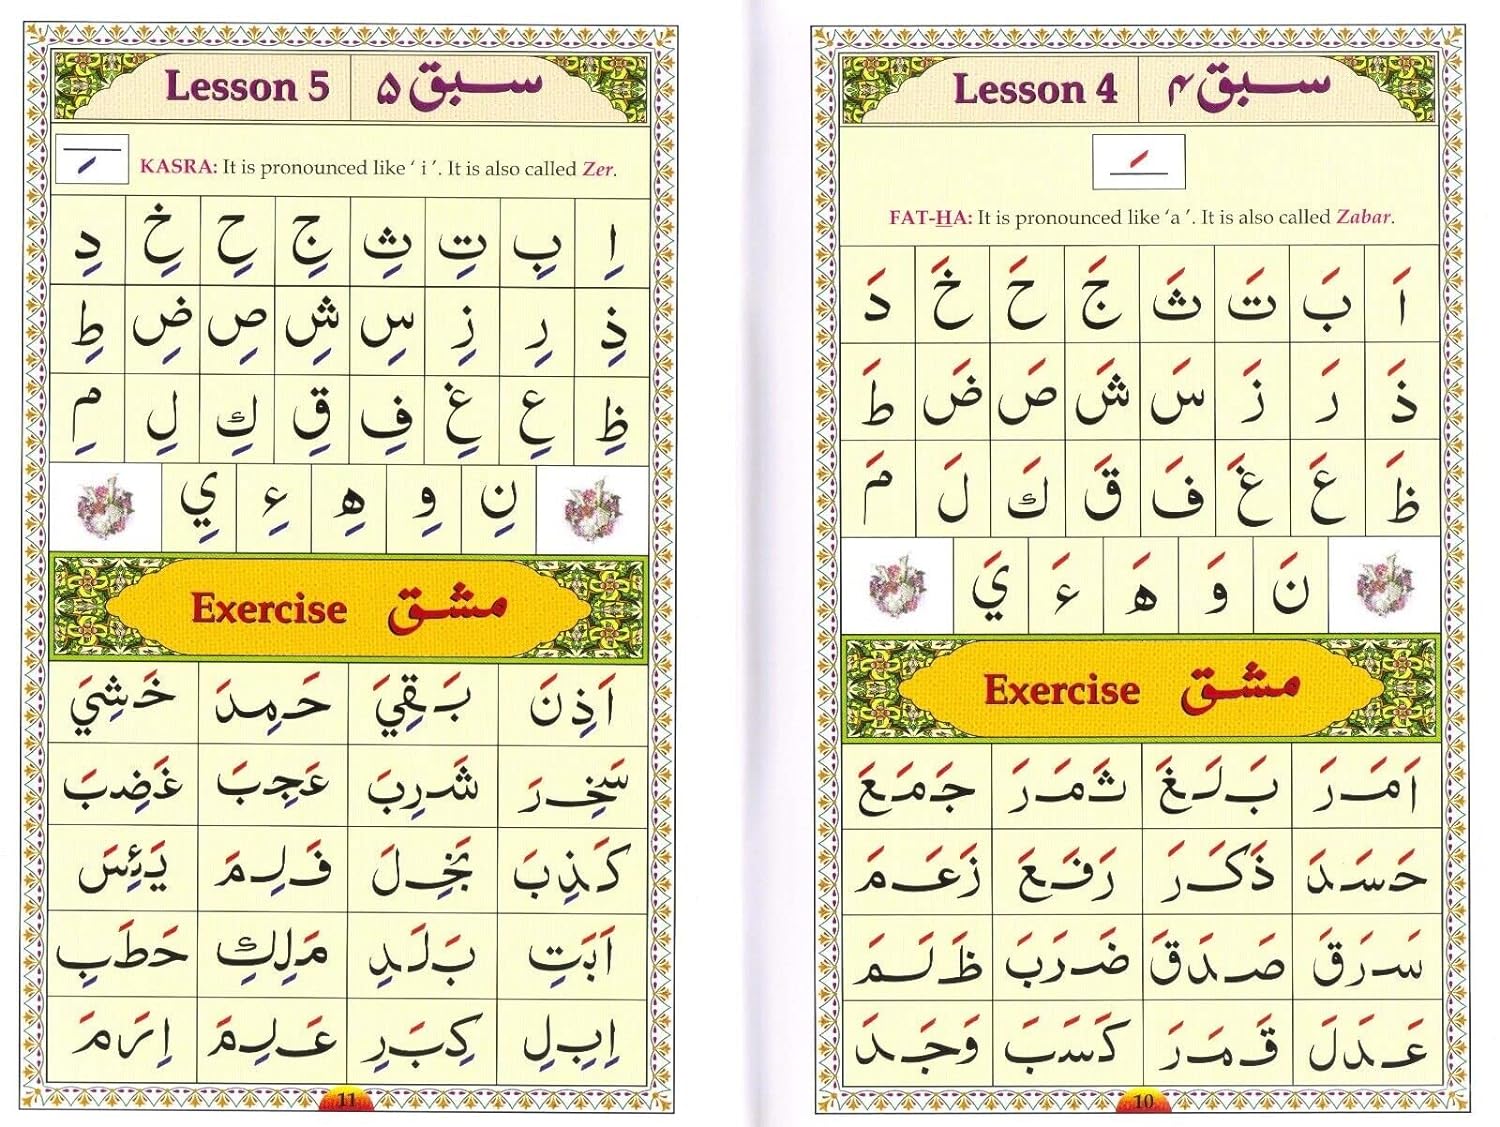 Lesson 4 سبق ۴
FAT-HA: It is pronounced like ‘a ’. It is also called Zabar.
اَ بَ تَ ثَ جَ حَ خَ دَ
ذَ رَ زَ سَ شَ صَ ضَ طَ
ظَ عَ غَ فَ قَ كَ لَ مَ
نَ وَ هَ ءَ يَ
Exercise مشق
اَمَرَ بَلَغَ ثَمَرَ جَمَعَ
حَسَدَ ذَكَرَ رَفَعَ زَعَمَ
سَرَقَ صَدَقَ ضَرَبَ ظَلَمَ
عَدَلَ قَمَرَ كَسَبَ وَجَدَ
10
Lesson 5 سبق ۵
KASRA: It is pronounced like ‘ i ’. It is also called Zer.
اِ بِ تِ ثِ جِ حِ خِ دِ
ذِ رِ زِ سِ شِ صِ ضِ طِ
ظِ عِ غِ فِ قِ كِ لِ مِ
نِ وِ هِ ءِ يِ
Exercise مشق
اَذِنَ بَقِيَ حَمِدَ خَشِيَ
سَخِرَ شَرِبَ عَجِبَ غَضِبَ
كَذِبَ بَخِلَ فَلِمَ يَئِسَ
اَبَتِ بَلَدِ مَلِكِ حَطَبِ
اِبِلِ كِبَرِ عَلِمَ اِرَمَ
11